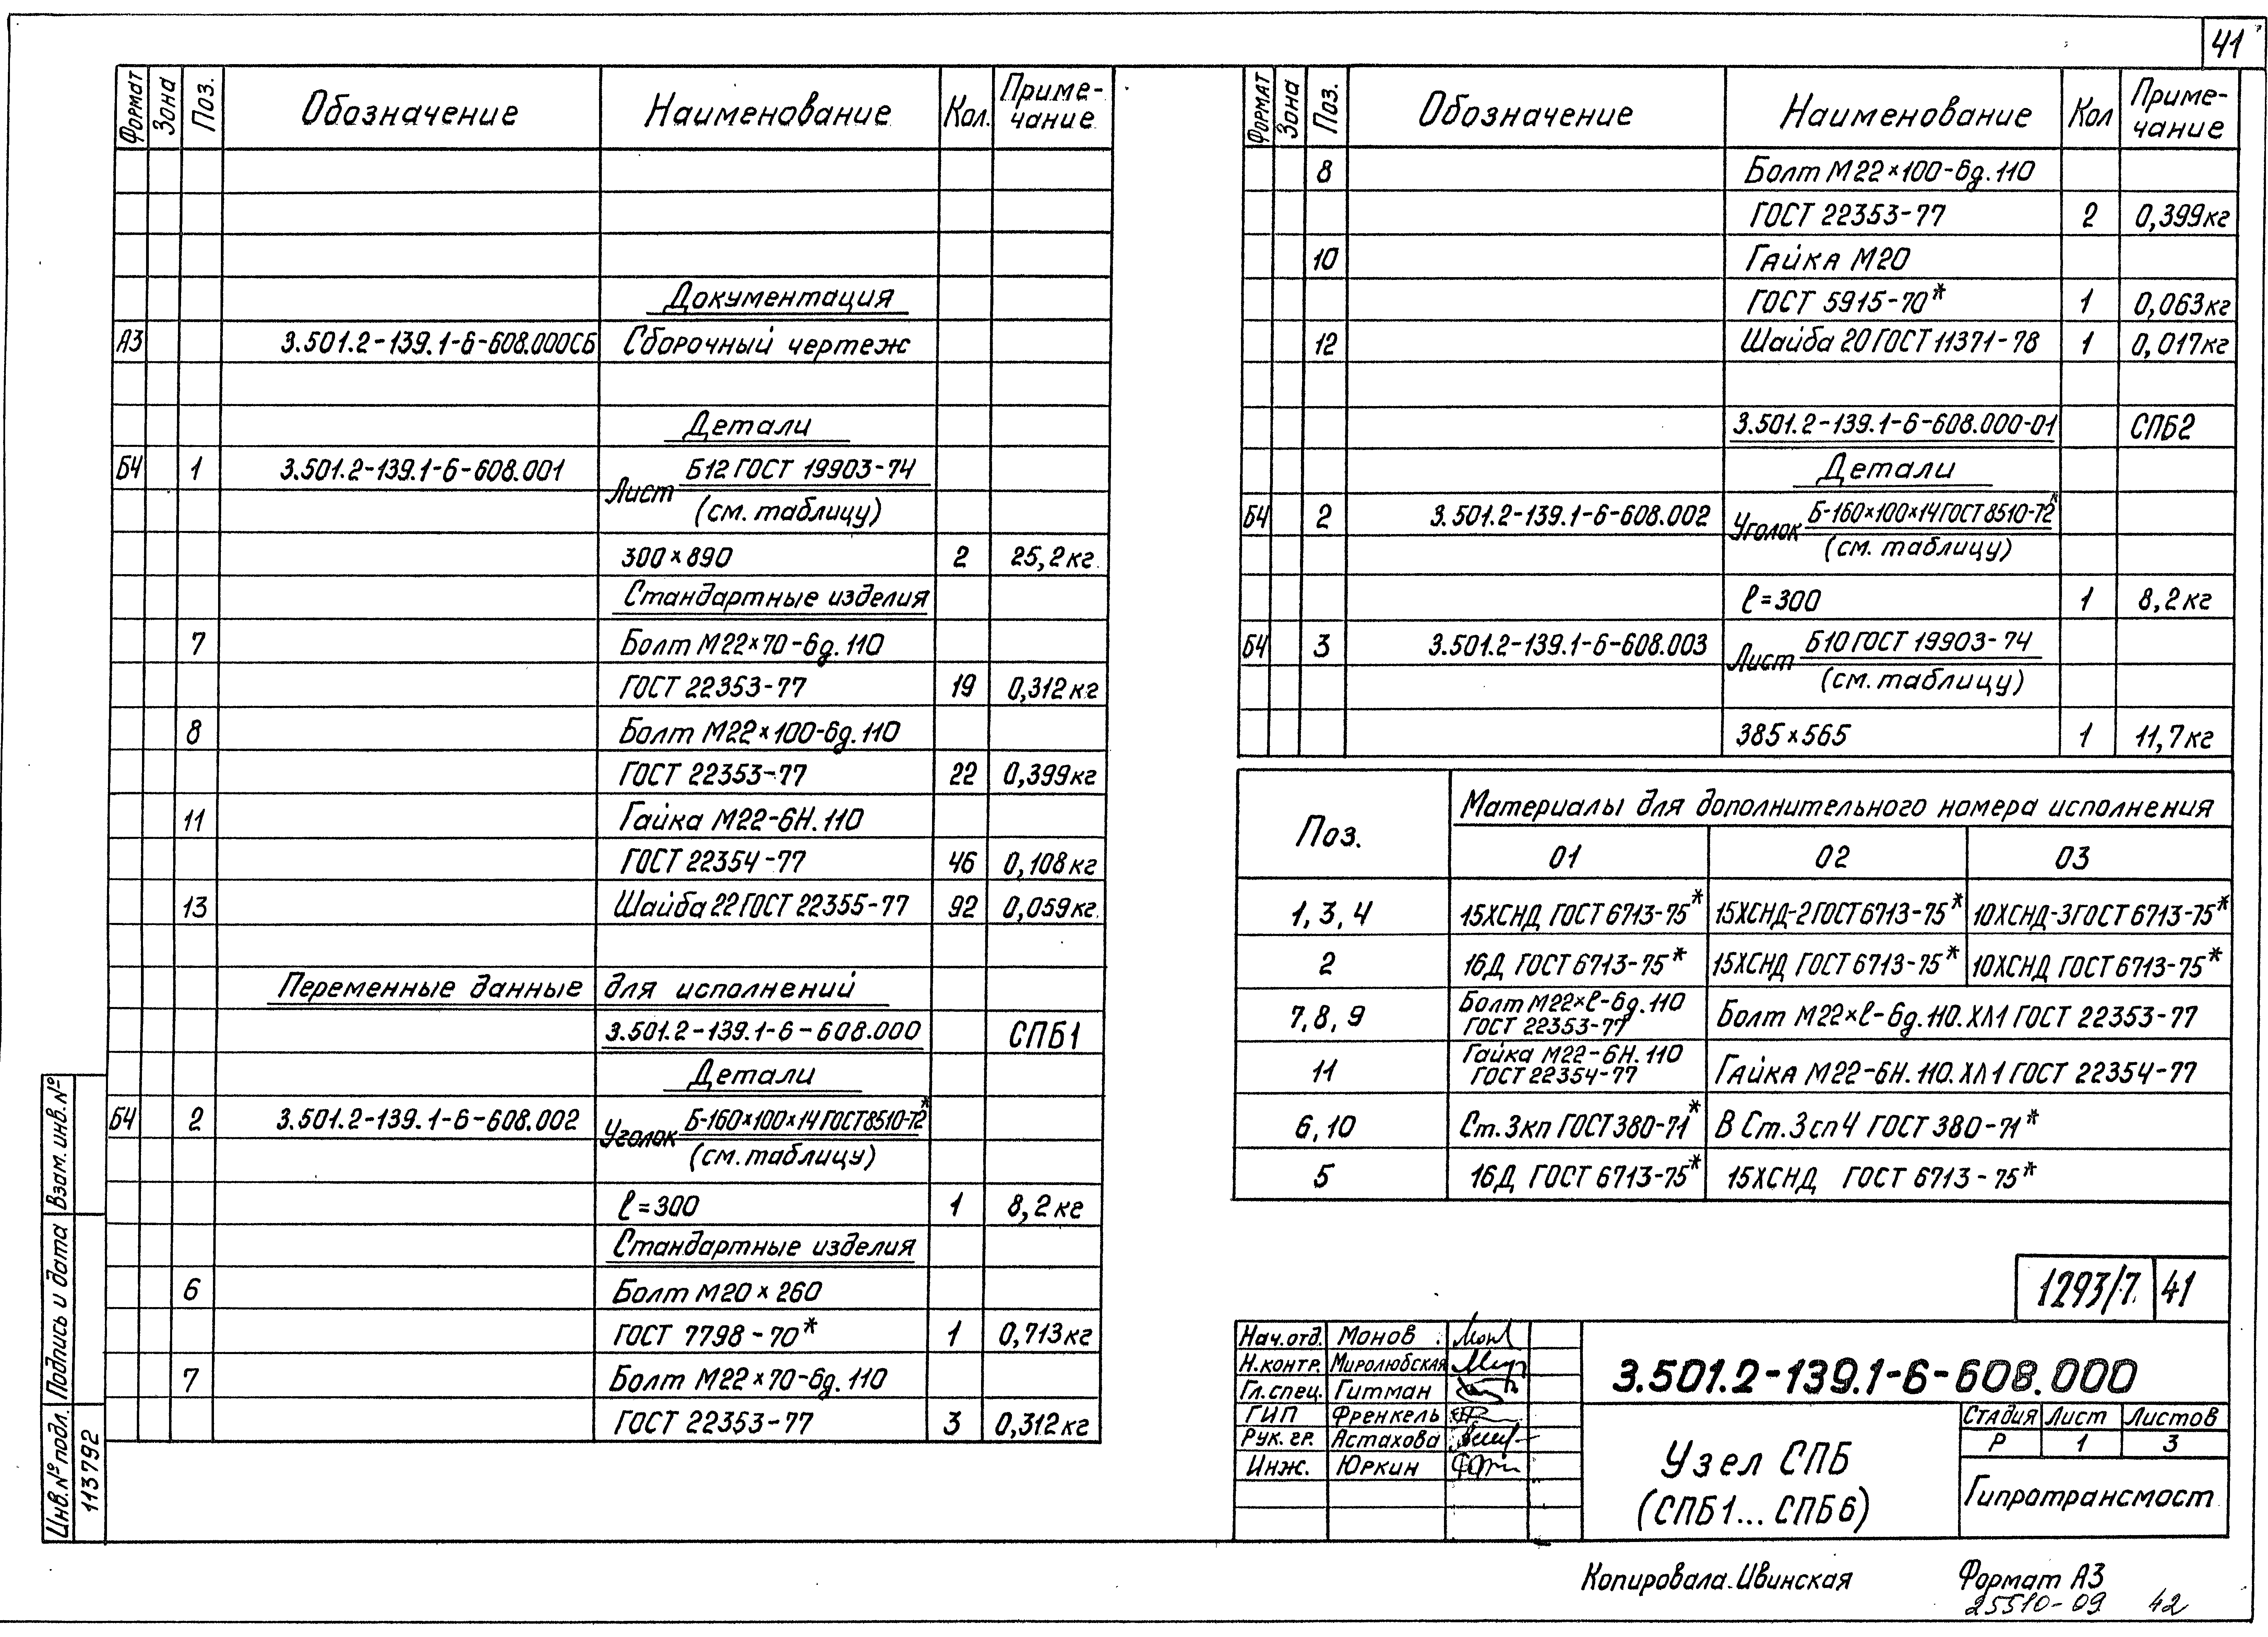 41
Формат Зона Поз. Обозначение Наименование Кол. Приме-чание
Документация
А3 3.501.2-139.1-6-608.000СБ Сборочный чертеж
Детали
Б4 1 3.501.2-139.1-6-608.001 Лист Б12 ГОСТ 19903-74
(см. таблицу)
300×890 2 25,2кг.
Стандартные изделия
7 Болт М22×70-6g.110
ГОСТ 22353-77 19 0,312кг
8 Болт М22×100-6g.110
ГОСТ 22353-77 22 0,399кг
11 Гайка М22-6Н.110
ГОСТ 22354-77 46 0,108кг
13 Шайба 22 ГОСТ 22355-77 92 0,059кг.
Переменные данные для исполнений
3.501.2-139.1-6-608.000 СПБ1
Детали
Б4 2 3.501.2-139.1-6-608.002 Уголок Б-160×100×14 ГОСТ 8510-72*
(см. таблицу)
ℓ=300 1 8,2кг
Стандартные изделия
6 Болт М20×260
ГОСТ 7798-70* 1 0,713кг
7 Болт М22×70-6g.110
ГОСТ 22353-77 3 0,312кг
Формат Зона Поз. Обозначение Наименование Кол Приме-чание
8 Болт М22×100-6g.110
ГОСТ 22353-77 2 0,399кг
10 Гайка М20
ГОСТ 5915-70* 1 0,063кг
12 Шайба 20 ГОСТ 11371-78 1 0,017кг
3.501.2-139.1-6-608.000-01 СПБ2
Детали
Б4 2 3.501.2-139.1-6-608.002 Уголок Б-160×100×14 ГОСТ 8510-72*
(см. таблицу)
ℓ=300 1 8,2кг
Б4 3 3.501.2-139.1-6-608.003 Лист Б10 ГОСТ 19903-74
(см. таблицу)
385×565 1 11,7кг
Поз. Материалы для дополнительного номера исполнения
01 02 03
1, 3, 4 15ХСНД ГОСТ 6713-75* 15ХСНД-2 ГОСТ 6713-75* 10ХСНД-3 ГОСТ 6713-75*
2 16Д ГОСТ 6713-75* 15ХСНД ГОСТ 6713-75* 10ХСНД ГОСТ 6713-75*
7, 8, 9 Болт М22×ℓ-6g.110 ГОСТ 22353-77 Болт М22×ℓ-6g.110.ХЛ1 ГОСТ 22353-77
11 Гайка М22-6Н.110 ГОСТ 22354-77 Гайка М22-6Н.110.ХЛ1 ГОСТ 22354-77
6, 10 Ст.3кп ГОСТ 380-71* В Ст.3сп4 ГОСТ 380-71*
5 16Д ГОСТ 6713-75* 15ХСНД ГОСТ 6713-75*
1293/7 41
Нач.отд. Монов
Н.контр. Миролюбская
Гл.спец. Гитман
ГИП Френкель
Рук.гр. Астахова
Инж. Юркин
3.501.2-139.1-6-608.000
Узел СПБ
(СПБ1... СПБ6)
Стадия Лист Листов
Р 1 3
Гипротрансмост
Инв.№ подл. Подпись и дата Взам. инв.№
113792
Копировала Ивинская Формат А3
25510-09 42